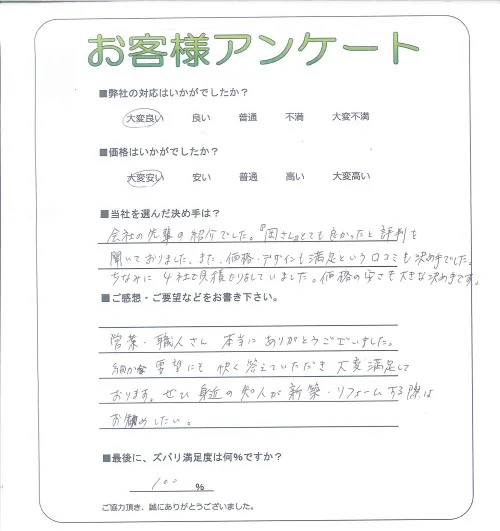 お客様アンケート
■弊社の対応はいかがでしたか？
大変良い 良い 普通 不満 大変不満
■価格はいかがでしたか？
大変安い 安い 普通 高い 大変高い
■当社を選んだ決め手は？
会社の先輩の紹介でした。『岡さん』とても良かったと評判を
聞いておりました。また、価格・デザインも満足という口コミも決め手でした。
ちなみに 4社で見積もりをしていました。価格の安さも大きな決め手です。
■ご感想・ご要望などをお書き下さい。
営業・職人さん 本当にありがとうございました。
細かな要望にも 快く答えていただき 大変満足して
おります。ぜひ 身近の知人が 新築・リフォームする際は
お勧めしたい。
■最後に、ズバリ満足度は何%ですか？
100 %
ご協力頂き、誠にありがとうございました。